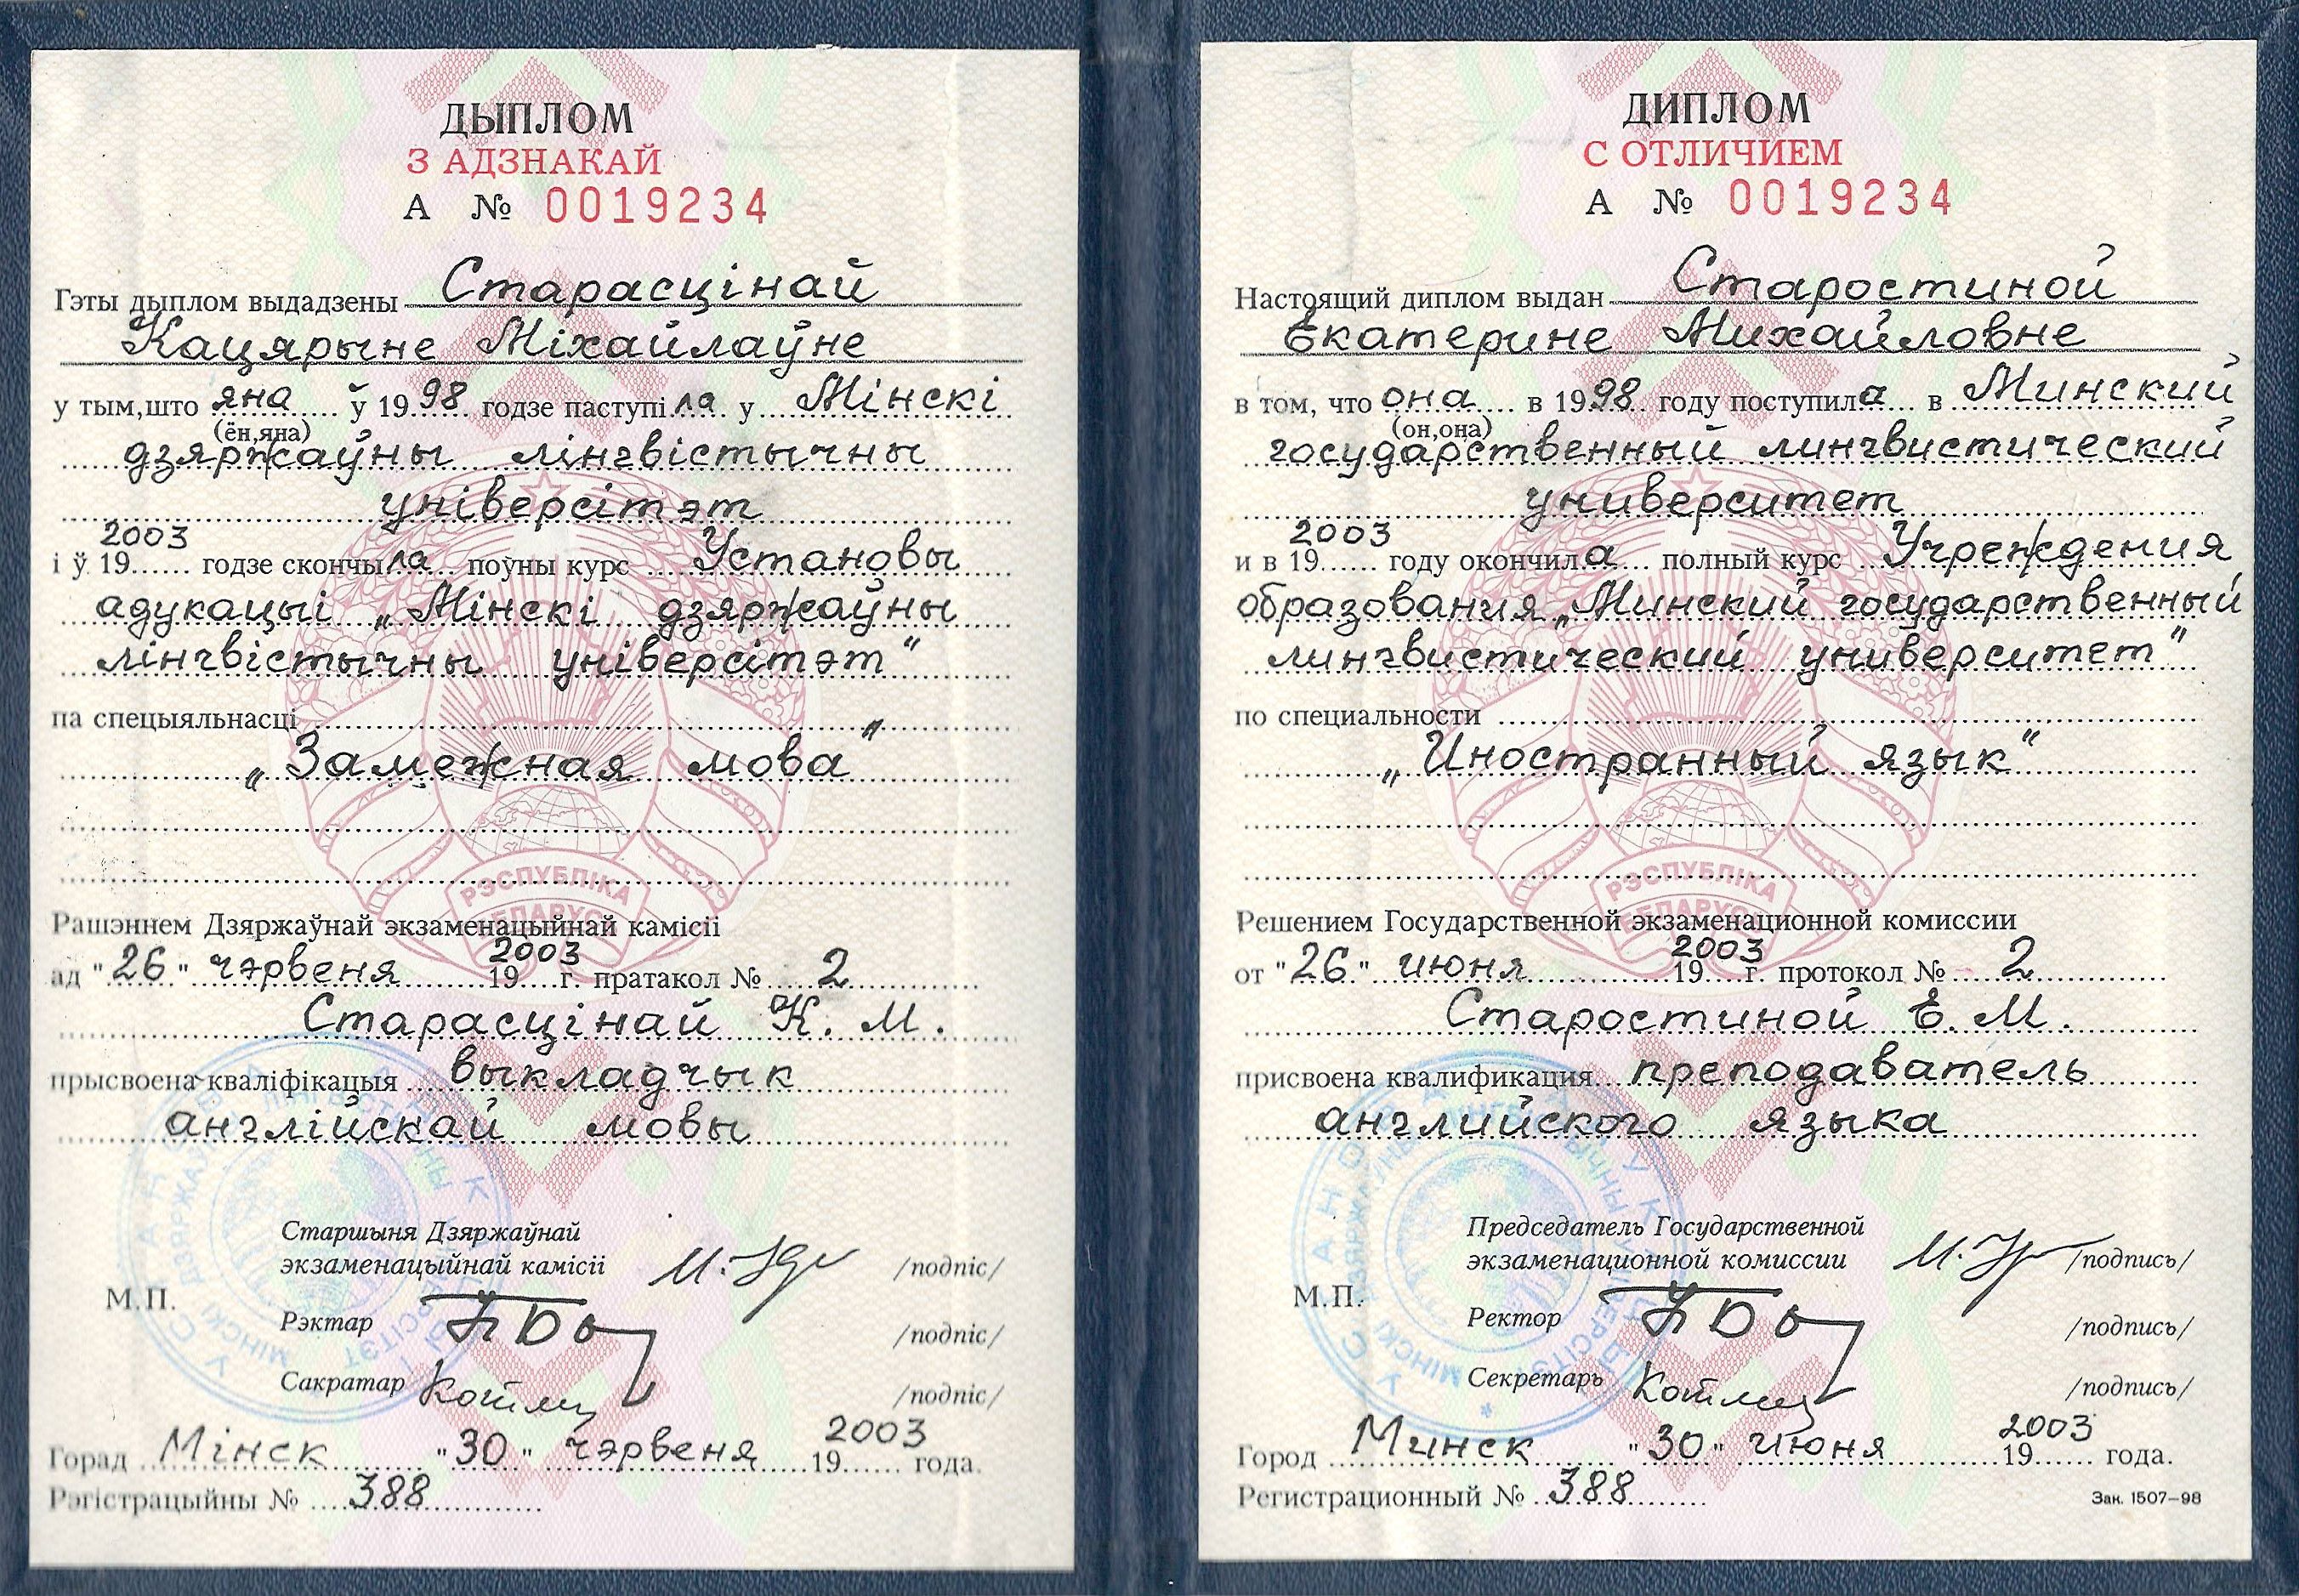 ДЫПЛОМ
З АДЗНАКАЙ
А № 0019234
Гэты дыплом выдадзены Старасцінай
Кацярыне Міхайлаўне
у тым,што яна ў 1998 годзе паступіла у Мінскі
(ён,яна)
дзяржаўны лінгвістычны
універсітэт
2003
і ў 19...... годзе скончыла поўны курс Установы
адукацыі „Мінскі дзяржаўны
лінгвістычны універсітэт"
па спецыяльнасці
„Замежная мова"
РЭСПУБЛІКА
БЕЛАРУСЬ
Рашэннем Дзяржаўнай экзаменацыйнай камісіі
2003
ад "26" чэрвеня 19....г. пратакол № 2
Старасцінай К. М.
прысвоена кваліфікацыя выкладчык
англійскай мовы
Старшыня Дзяржаўнай
экзаменацыйнай камісіі /подпіс/
М.П.
Рэктар /подпіс/
Сакратар /подпіс/
2003
Горад Мінск "30" чэрвеня 19...... года.
Рэгістрацыйны № 388
ДИПЛОМ
С ОТЛИЧИЕМ
А № 0019234
Настоящий диплом выдан Старостиной
Екатерине Михайловне
в том, что она в 1998 году поступила в Минский
(он,она)
государственный лингвистический
университет
2003
и в 19...... году окончила полный курс Учреждения
образования „Минский государственный
лингвистический университет"
по специальности
„Иностранный язык"
РЭСПУБЛІКА
БЕЛАРУСЬ
Решением Государственной экзаменационной комиссии
2003
от "26" июня 19....г. протокол № 2
Старостиной Е. М.
присвоена квалификация преподаватель
английского языка
Председатель Государственной
экзаменационной комиссии /подпись/
М.П.
Ректор /подпись/
Секретарь /подпись/
2003
Город Минск "30" июня 19...... года.
Регистрационный № 388
Зак. 1507–98